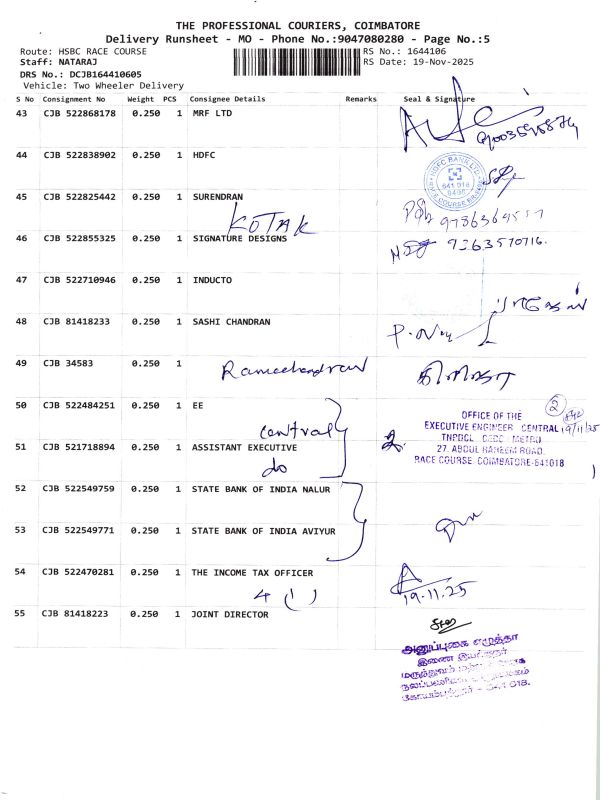 THE PROFESSIONAL COURIERS, COIMBATORE
Delivery Runsheet - MO - Phone No.:9047080280 - Page No.:5
Route: HSBC RACE COURSE RS No.: 1644106
Staff: NATARAJ RS Date: 19-Nov-2025
DRS No.: DCJB164410605
Vehicle: Two Wheeler Delivery
S No Consignment No Weight PCS Consignee Details Remarks Seal & Signature
43 CJB 522868178 0.250 1 MRF LTD
44 CJB 522838902 0.250 1 HDFC
HDFC BANK LTD
641 018
45 CJB 522825442 0.250 1 SURENDRAN
KOTAK
46 CJB 522855325 0.250 1 SIGNATURE DESIGNS 9363570716.
47 CJB 522710946 0.250 1 INDUCTO
48 CJB 81418233 0.250 1 SASHI CHANDRAN
49 CJB 34583 0.250 1
Ramachandran
50 CJB 522484251 0.250 1 EE
central
2
OFFICE OF THE
EXECUTIVE ENGINEER CENTRAL 19/11/25
TNPDCL METRO
27, ABDUL RAHEEM ROAD,
RACE COURSE, COIMBATORE-641018
51 CJB 521718894 0.250 1 ASSISTANT EXECUTIVE
do
52 CJB 522549759 0.250 1 STATE BANK OF INDIA NALUR
53 CJB 522549771 0.250 1 STATE BANK OF INDIA AVIYUR
54 CJB 522470281 0.250 1 THE INCOME TAX OFFICER
4 (1) 19.11.25
55 CJB 81418223 0.250 1 JOINT DIRECTOR
இணை இயக்குநர்
கோயம்புத்தூர் - 641 018.